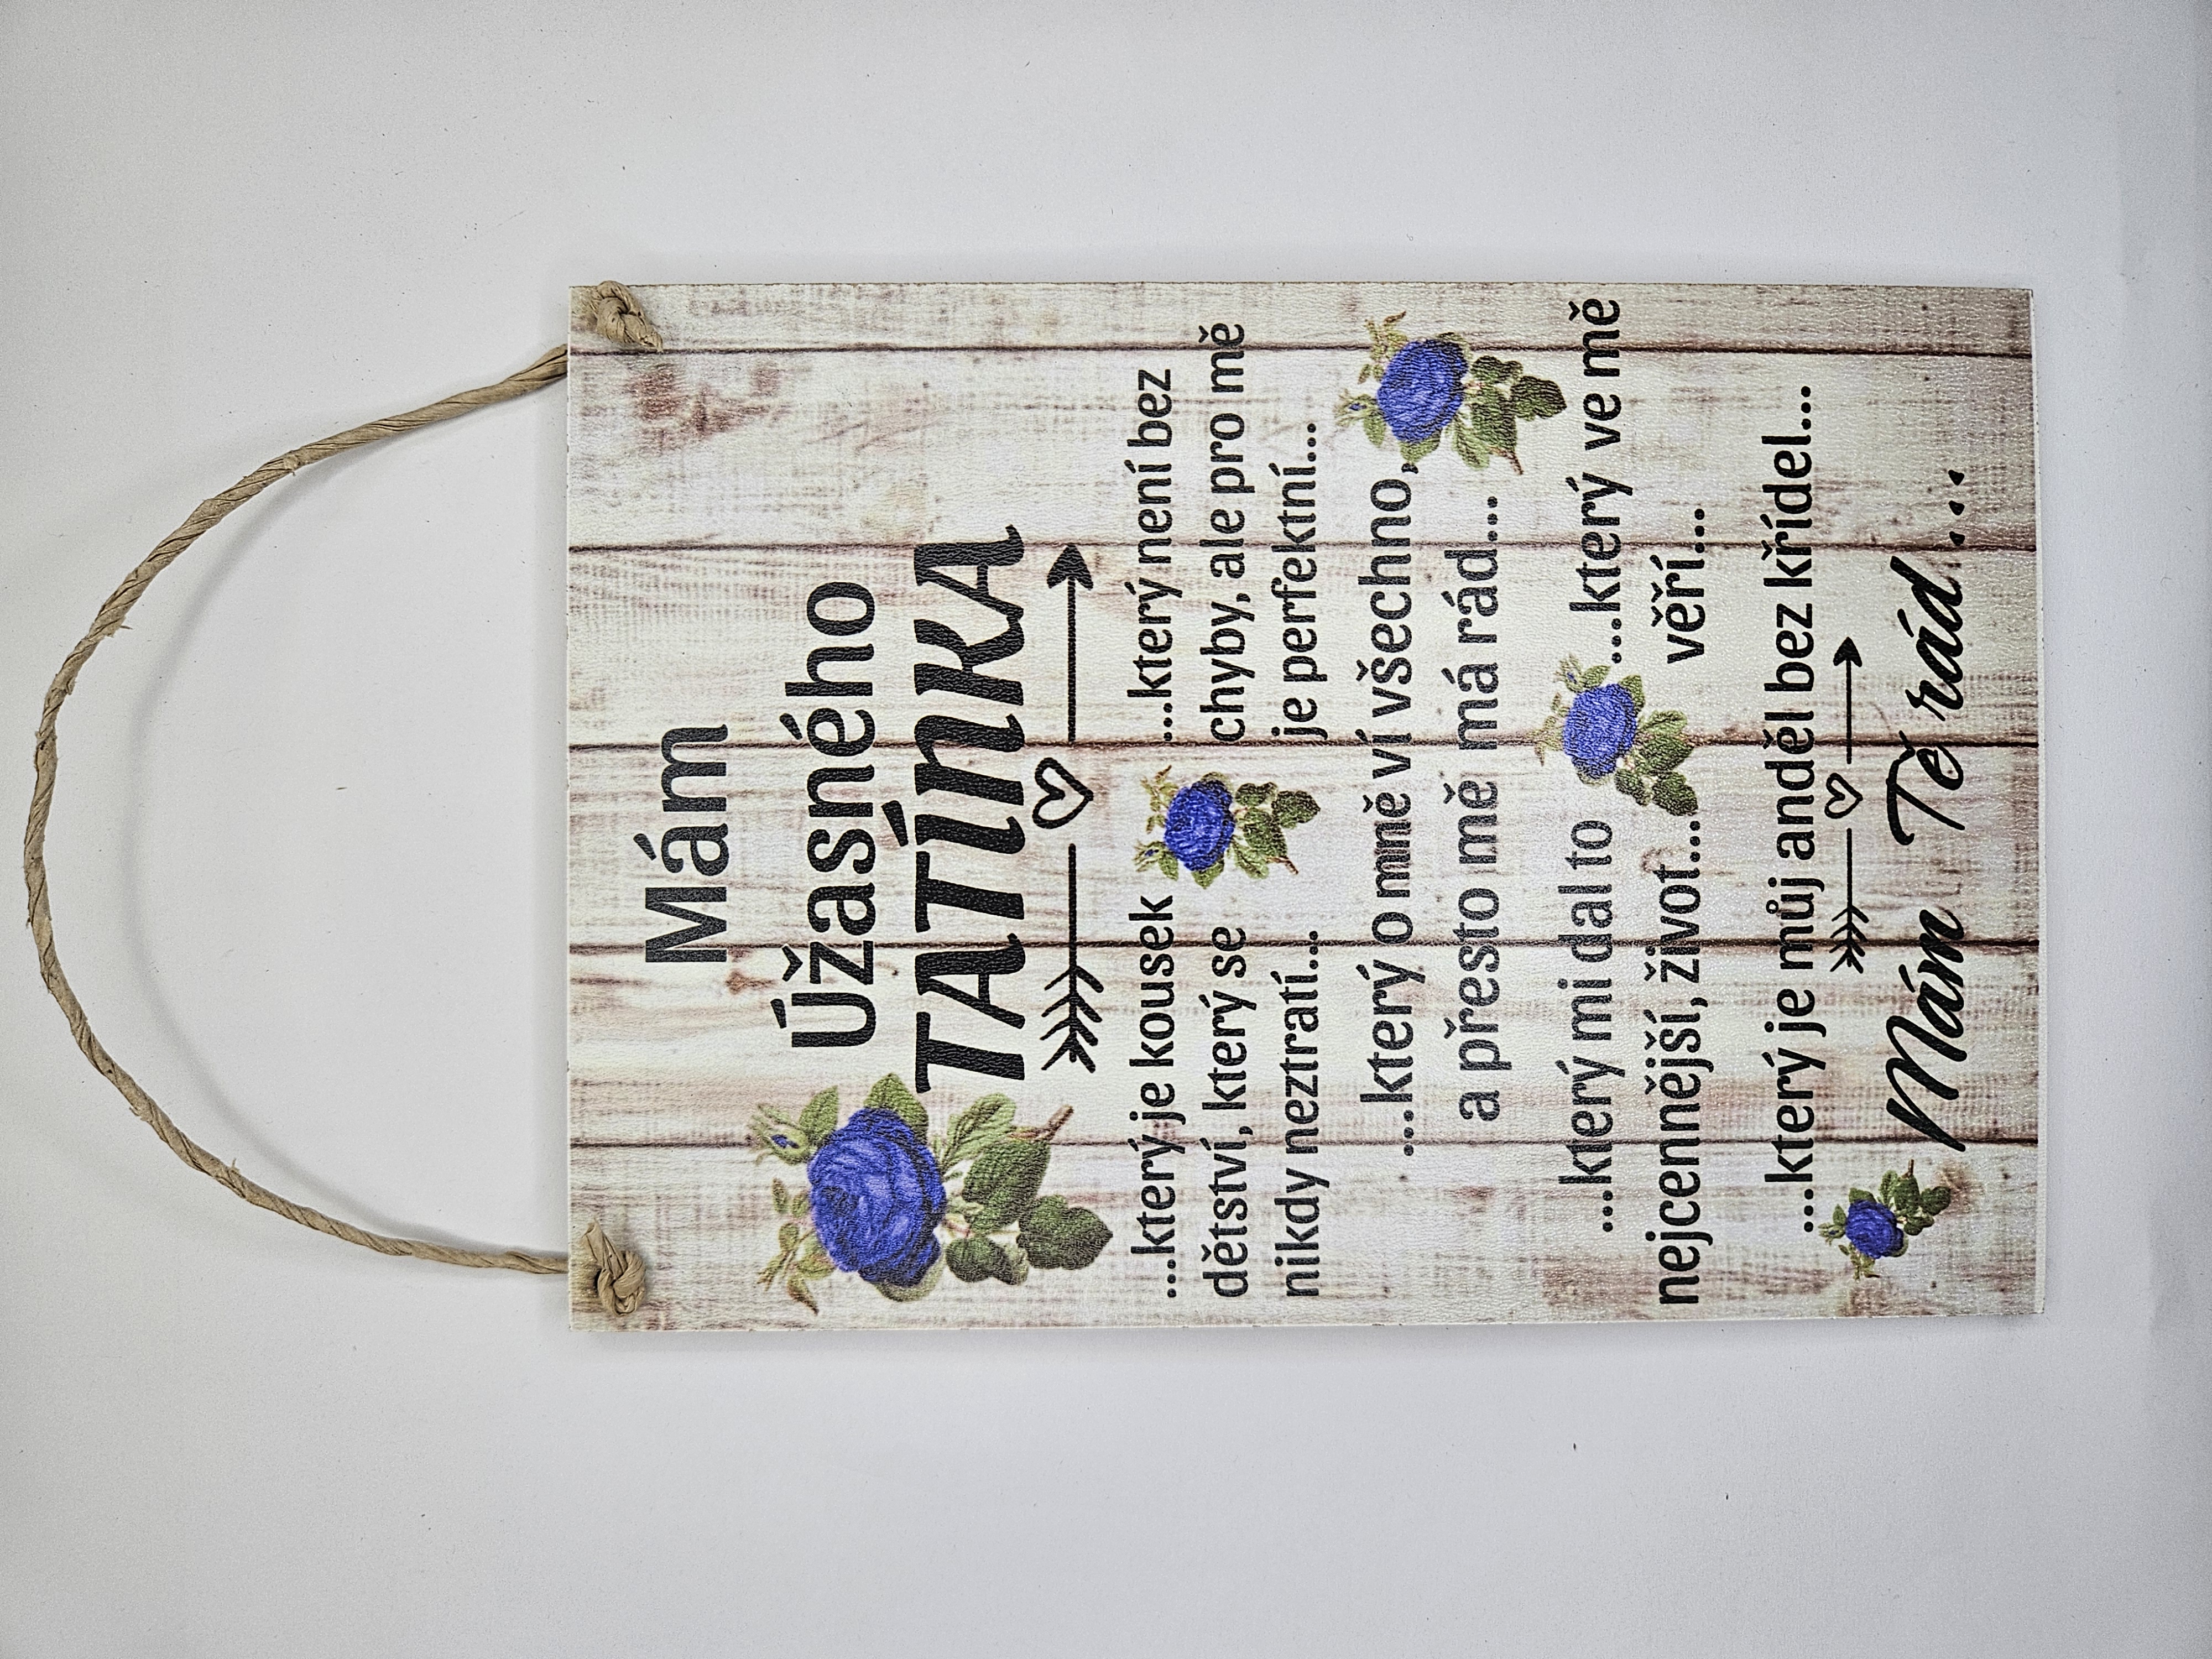 Mám
Úžasného
TATÍNKA
...který je kousek
dětství, který se
nikdy neztratí...
...který není bez
chyby, ale pro mě
je perfektní...
...který o mně ví všechno,
a přesto mě má rád...
...který mi dal to
nejcennější, život...
...který ve mě
věří...
...který je můj anděl bez křídel...
Mám Tě rád...